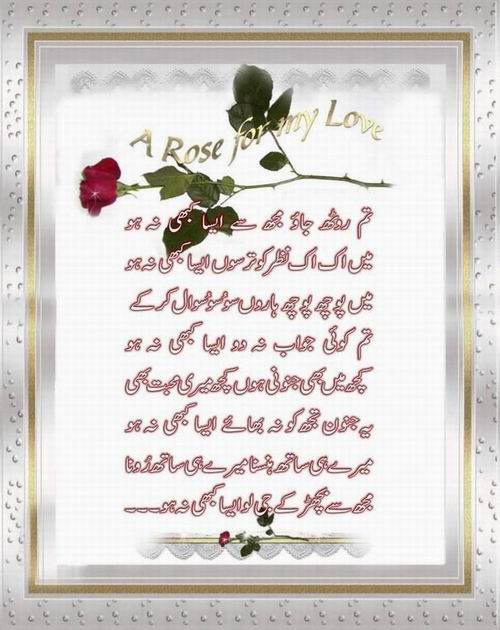 A Rose for my Love
تم روٹھ جاؤ مجھ سے ایسا کبھی نہ ہو
میں اک اک نظر کو ترسوں ایسا کبھی نہ ہو
میں پوچھ پوچھ ہاروں سو سو سوال کر کے
تم کوئی جواب نہ دو ایسا کبھی نہ ہو
کچھ میں بھی جنونی ہوں کچھ میری محبت بھی
یہ جنون تجھ کو نہ بھائے ایسا کبھی نہ ہو
میرے ہی ساتھ ہنسنا میرے ہی ساتھ رُونا
مجھ سے بچھڑ کے جی لو ایسا کبھی نہ ہو۔۔۔۔